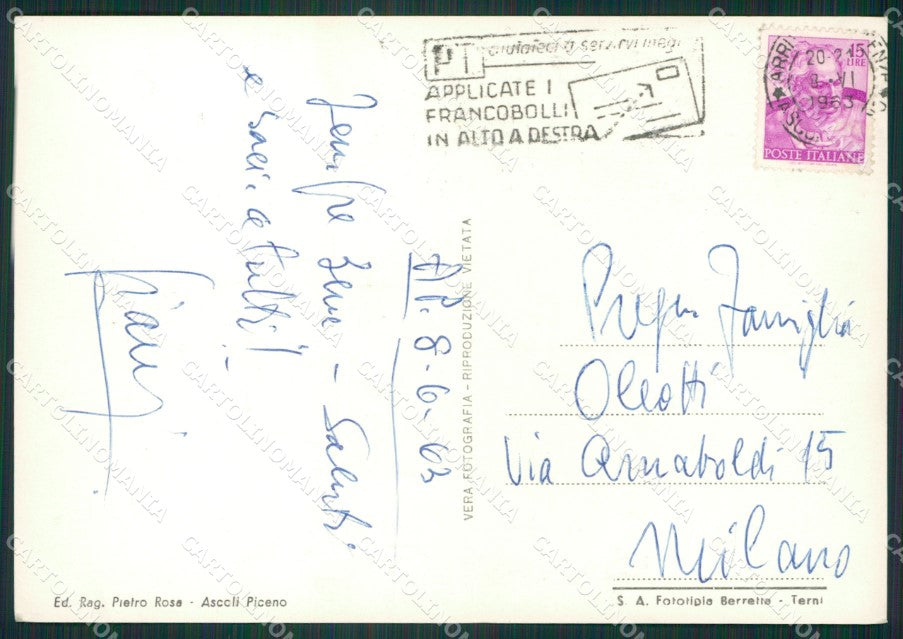 PT aiutateci a servirvi meglio
APPLICATE I
FRANCOBOLLI
IN ALTO A DESTRA
20-21
8-VI
1963
15
LIRE
POSTE ITALIANE
AP. 8-6-63
Sempre bene - Saluti
e baci a tutti!
VERA FOTOGRAFIA - RIPRODUZIONE VIETATA
Famiglia
Oleotti
Via Arnaboldi 15
Milano
Ed. Rag. Pietro Rosa - Ascoli Piceno
S. A. Fototipia Berretta - Terni
CARTOLINOMANIA